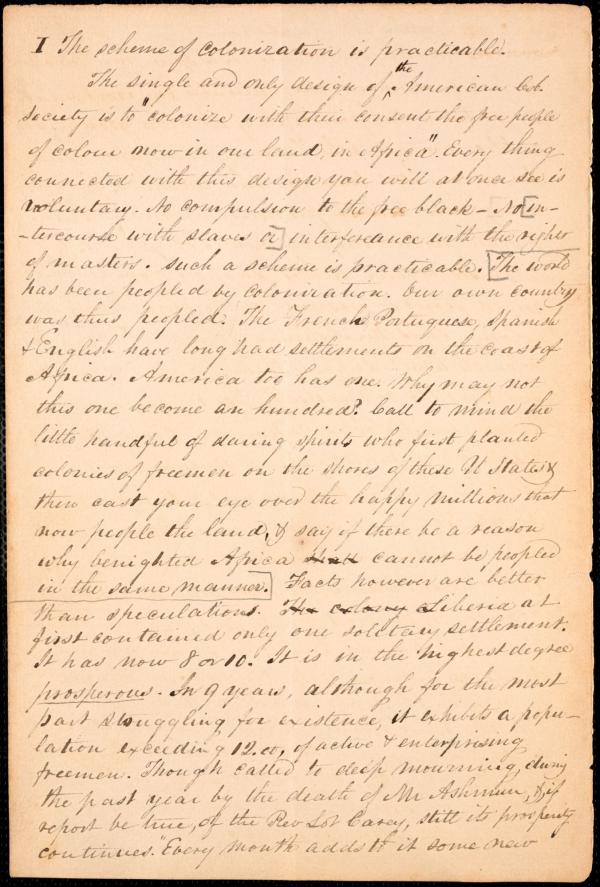 I The scheme of colonization is practicable.
The single and only design of the American Col.
society is to "colonize with their consent the free people
of colour now in our land, in Africa". Every thing
connected with this design you will at once see is
voluntary. No compulsion to the free black – No [in-
-tercourse with slaves or] interfereance with the rights
of masters. such a scheme is practicable. [The world
has been peopled by colonization. Our own country
was thus peopled. The French Portuguese, Spanish
& English have long had settlements on the coast of
Africa. America too has one. Why may not
this one become an hundred? Call to mind the
little handful of daring spirits who first planted
colonies of freemen on the shores of these U States &
then cast your eye over the happy millions that
now people the land, & say if there be a reason
why benighted Africa shall cannot be peopled
in the same manner.] Facts however are better
than speculations. The colony Liberia at
first contained only one solitary settlement.
It has now 8 or 10. It is in the highest degree
prosperous. In 9 years, although for the most
part struggling for existence, it exhibits a popu-
lation exceeding 12.00, of active & enterprising
freemen. Though called to deep mourning, during
the past year by the death of Mr Ashmun, & if
report be true, of the Rev Lot Carey, still its prosperity
continues. "Every month adds to it some new